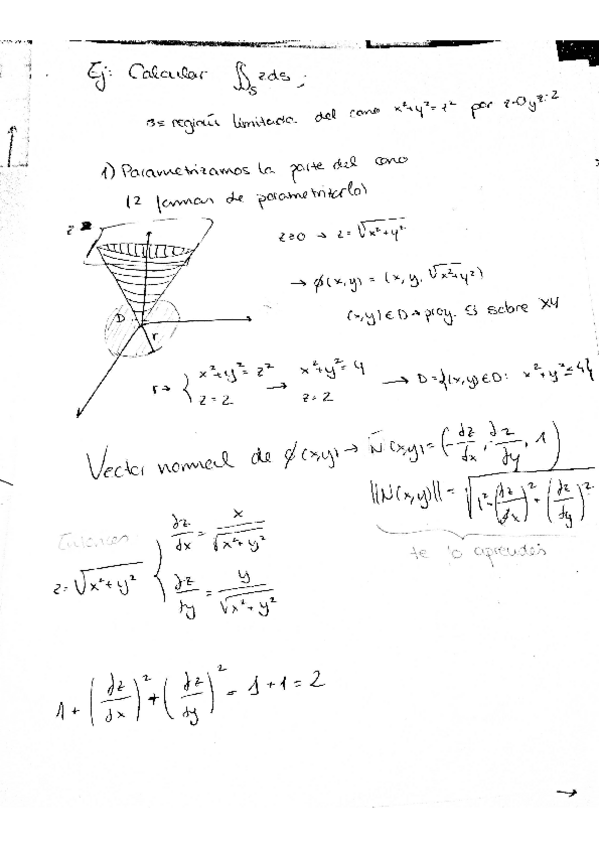 Ej: Calcular ∬_S z ds ;
S = región limitada del cono x²+y²=z² por z=0 y z=2
1) Parametrizamos la parte del cono
(2 formas de parametrizarlo)
z≥0 → z=√(x²+y²)
→ ϕ(x,y) = (x, y, √(x²+y²))
(x,y)∈D → proy. S sobre XY
z 2
D
r
r → { x²+y²=z² → x²+y²=4 → D={(x,y)∈D: x²+y²≤4}
z=2 z=2
Vector normal de ϕ(x,y) → N(x,y)=(-dz/dx, dz/dy, 1)
||N(x,y)|| = √(1²+(dz/dx)²+(dz/dy)²)
te lo aprendes
Entonces
z=√(x²+y²) { dz/dx = x/√(x²+y²)
dz/dy = y/√(x²+y²)
1+(dz/dx)²+(dz/dy)² = 1+1=2
→